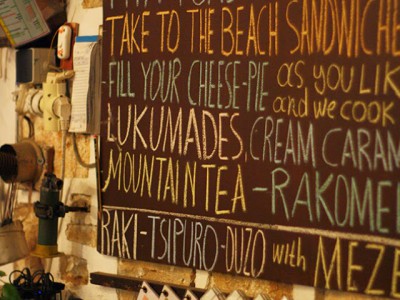 TAKE TO THE BEACH SANDWICHE
-FILL YOUR CHEESE-PIE as you LIK
and we cook
LUKUMADES, CREAM CARAM
-MOUNTAIN TEA -RAKOME
RAKI-TSIPURO-OUZO with MEZE